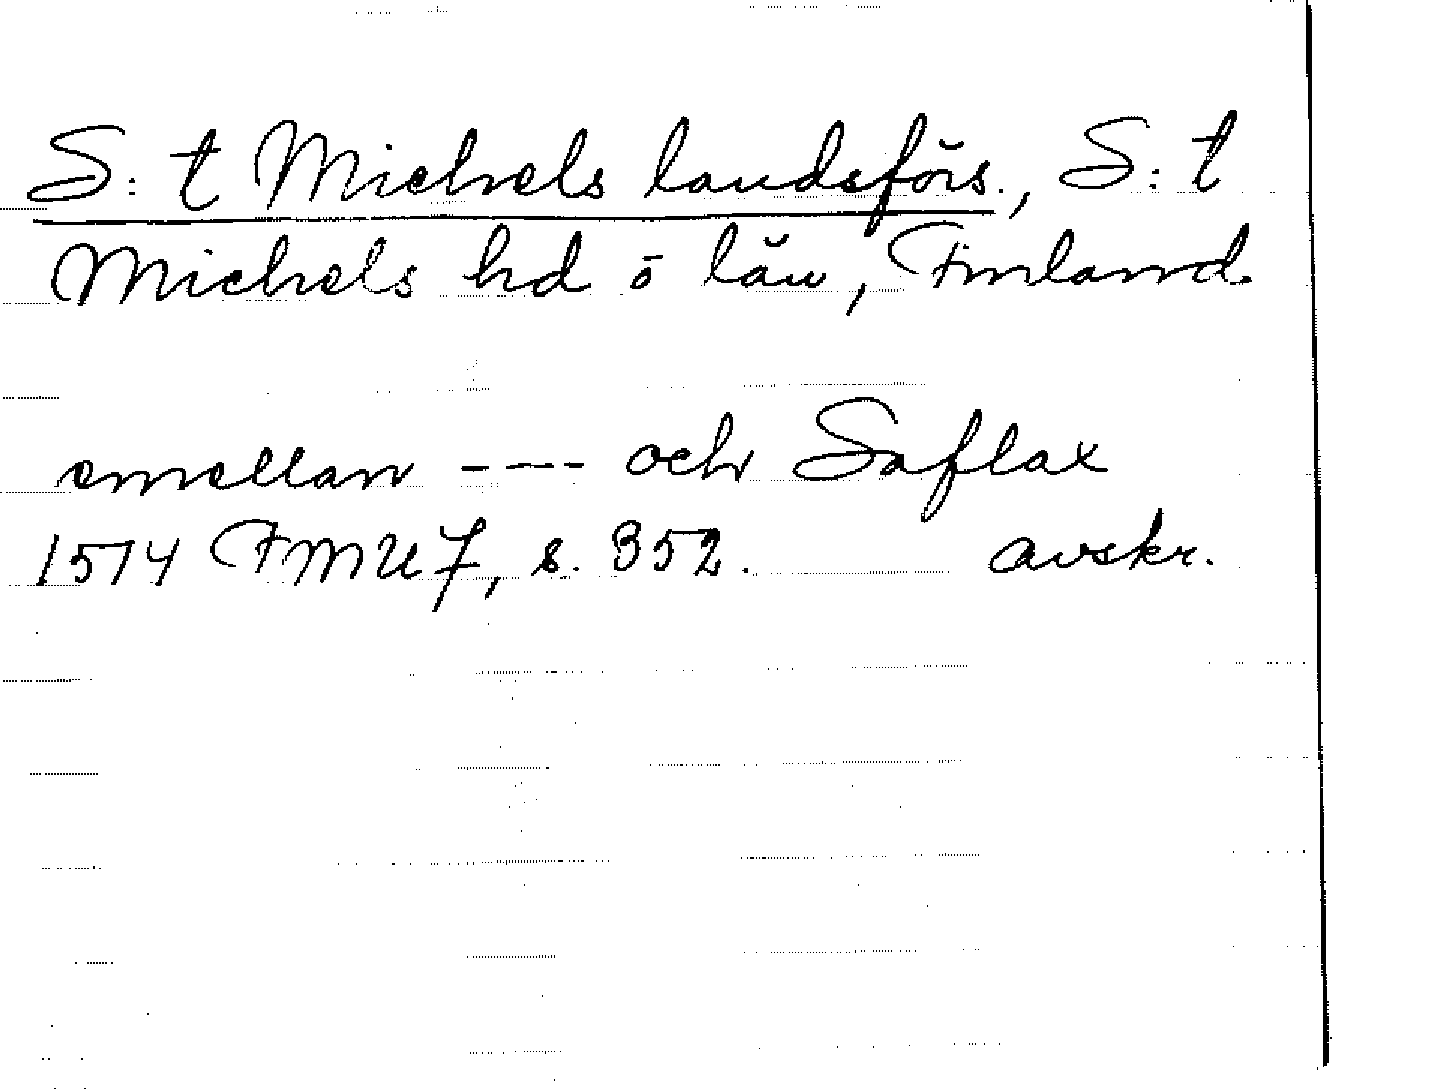 S:t Michels landsförs., S:t
Michels hd o län, Finland.
emellan ---- och Saflax
1514 FMU 7, s. 352. avskr.